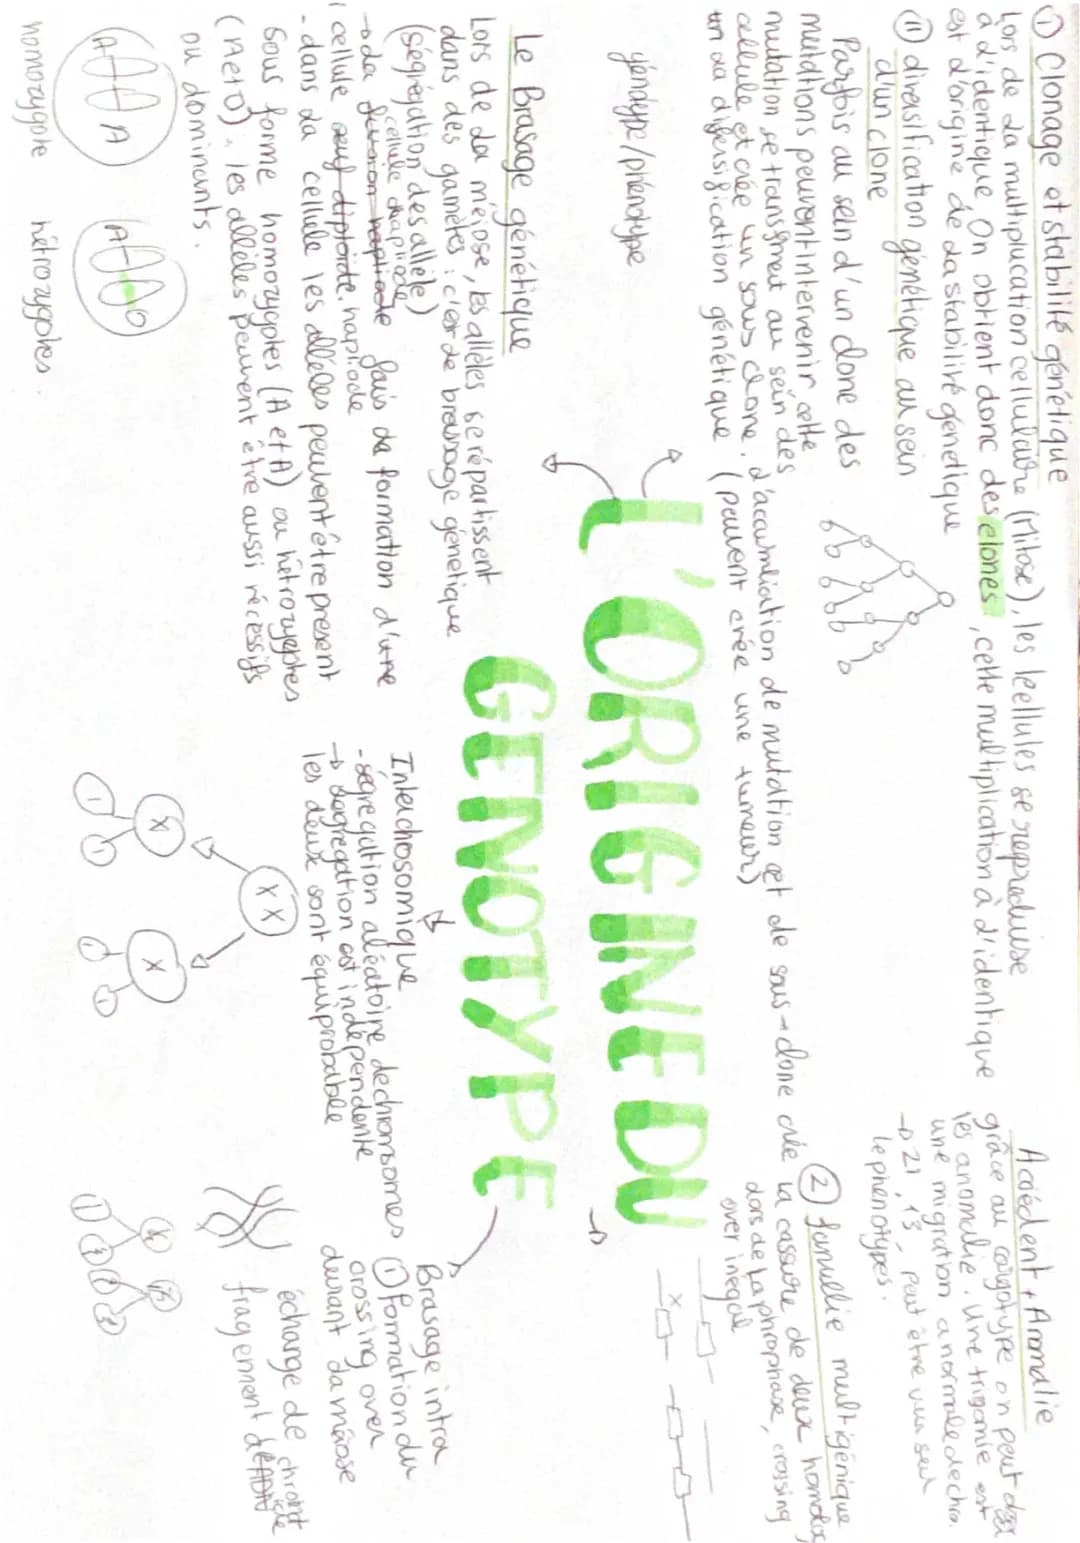 ① Clonage et stabilité génétique
Lors de la multiplucation cellulaire (Mitose), les leellules se reproduise
à d'identique, On obtient donc des clones, cette multiplication à d'identique
est d'origine de la stabilité génétique
① diversification génétique au sein
d'un clone
Parfois au sein d'un clone des
mutations peuvent intervenir cette
mutation se transmet au sein des
cellule et crée un sous clone. L'accumulation de mutation et de sous-clone crée
un la diversification génétique (peuvent crée une tumeur)
génotype/phénotype
L'ORIGINE DU
GENOTYPE
Le Brasage génétique
Lors de la méiose, les allèles se répartissent
dans des gamètes : c'est de brassage génétique
(ségrégation des allèle)
cellule diapliode
→ da fusion haploïde fais da formation d'une
cellule œuf diploïde. hapliode
- dans la cellule les allèles peuvent être present
sous forme homozygotes (A et A) ou hétrozygotes
(A et O), les allèles peuvent être aussi récessifs
ou dominants.
A A
A O
homozygote hétrozygotes.
Interchosomique
- ségrégation aléatoire de chromosomes
→ segrégation est indépendente
les deux sont équiprobable
X X
X X
1 1 1 1
Accédent + Anomalie
grâce au caryotype on peut
les anomalie. Une trisomie est
une migration anormale de chro.
→ 21, 13, peut être vu sur
le phénotypes.
② famillie multigénique
la cassure de deux homolog
lors de la phrophase, crossing
over inégale
X
Brasage intra
① formation du
crossing over
durant la méiose
échange de
fragement d'ADN